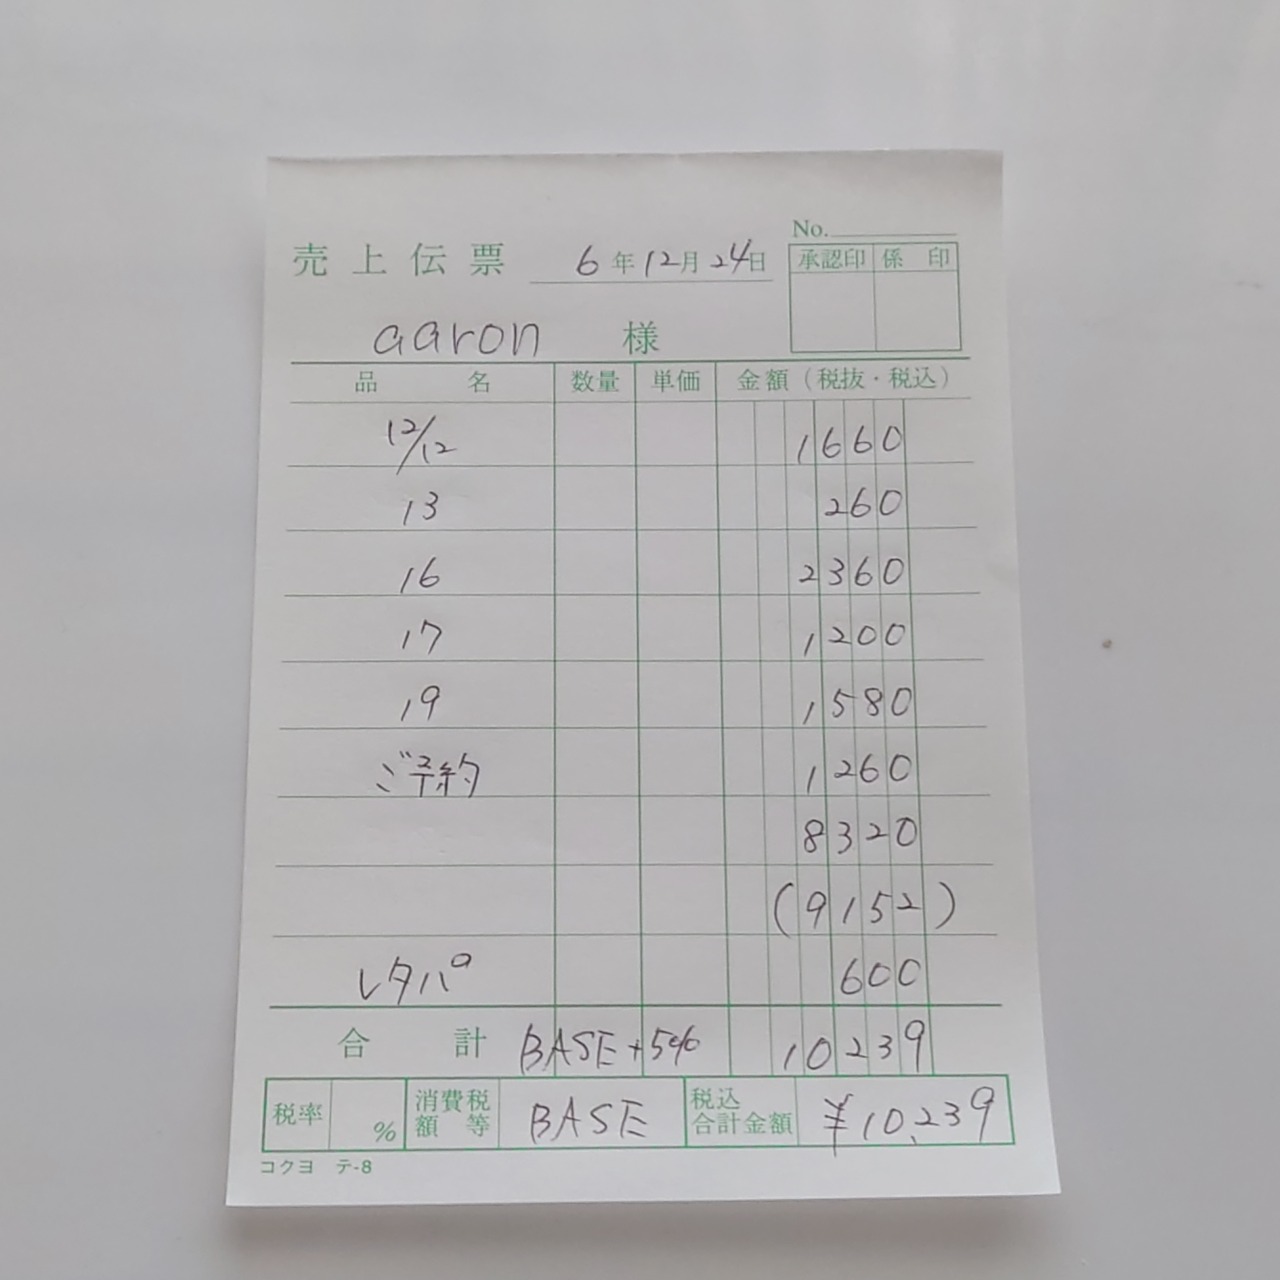 No.
売上伝票 6年12月24日 承認印 係印
aaron 様
品名 数量 単価 金額(税抜・税込)
12/12 1660
13 260
16 2360
17 1200
19 1580
ご予約 1260
8320
(9152)
レタパ 600
合計 BASE+5% 10239
税率 % 消費税額等 BASE 税込合計金額 ¥10,239
コクヨ テ-8